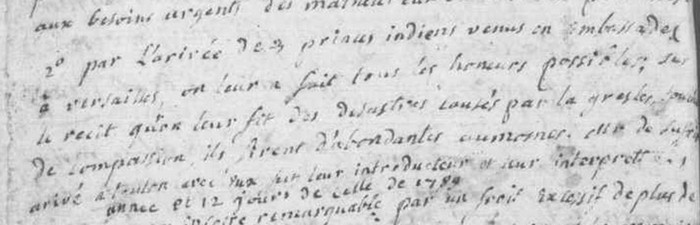 aux besoins urgents des malheur
2° par l'arivée de 3 princes indiens venus en embassades
à versailles, on leur a fait tous les honeurs possibles; sur
le recit qu'on leur fit des desastres causés par la gresles, touch
de compassion, ils firent d'abondantes aumosnes. Mr de
arivé a toulon avec eux fut leur introducteur et leur interprete
annee et 12 jours de celle de 1789
remarquable par un froit excessif de plus de